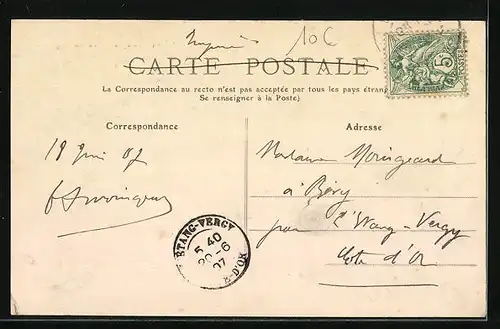 Imprimé
10C
CARTE POSTALE
La Correspondance au recto n'est pas acceptée par tous les pays étrang
Se renseigner à la Poste)
Correspondance
Adresse
5
18 Juin 07
Madame
à Bévy
par L'Etang-Vergy
Côte d'Or
ETANG-VERGY
5 40
20-6
07
E-D'OR